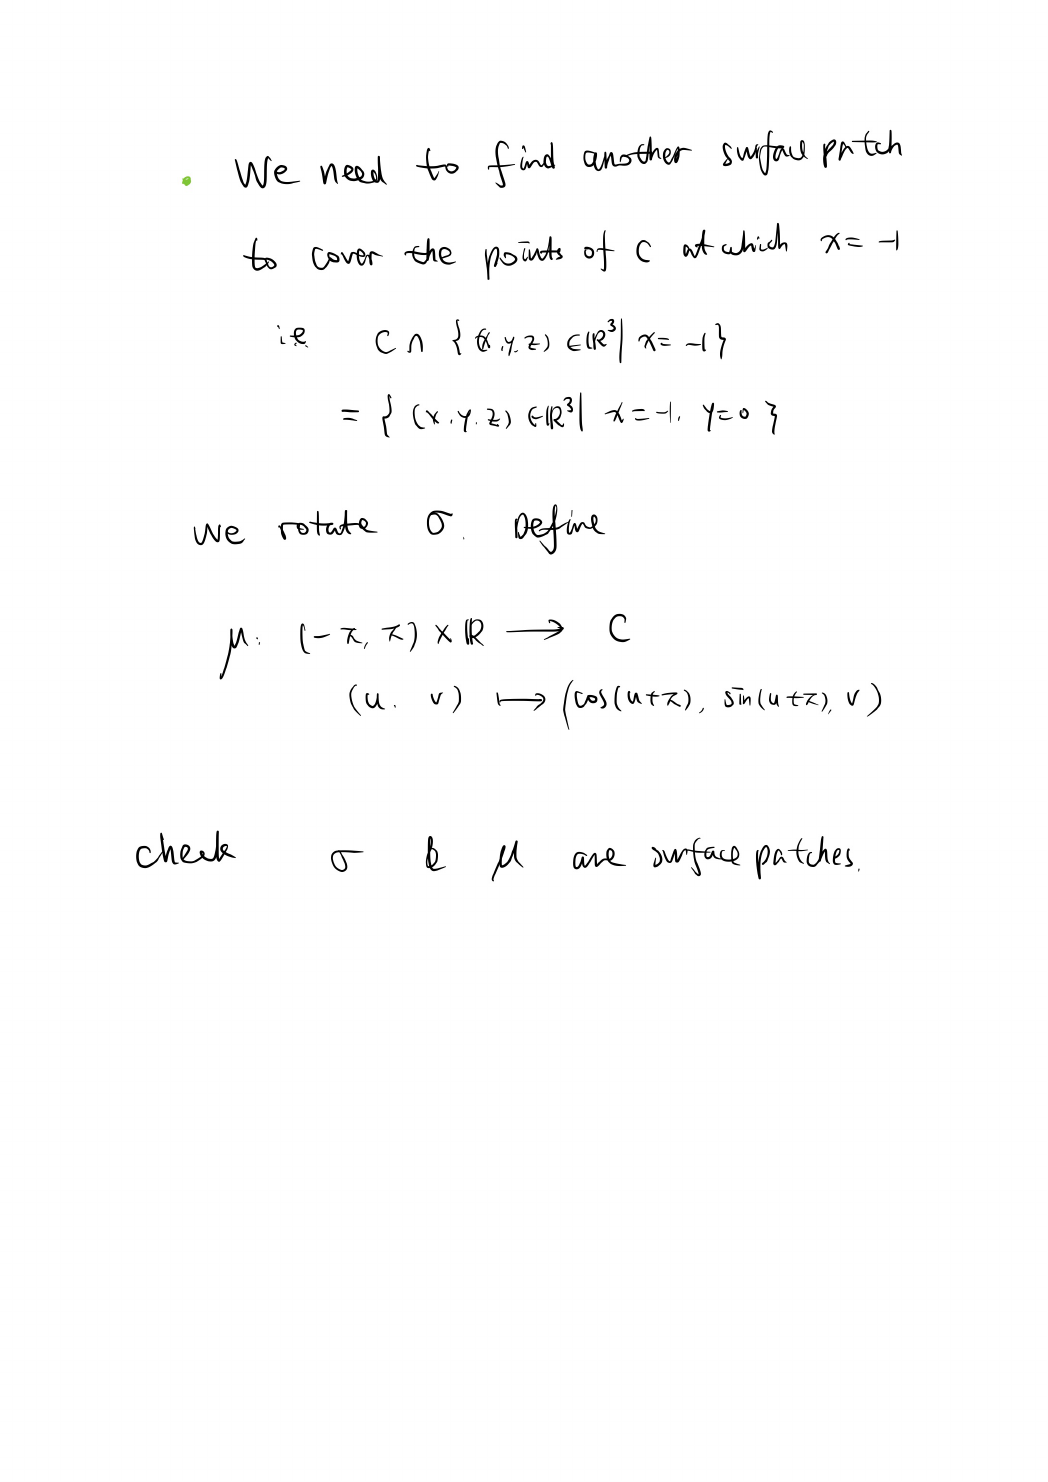 . We need to find another surface patch
to cover the points of C at which x = -1
i.e C ∩ { (x, y, z) ∈ ℝ³ | x = -1 }
= { (x, y, z) ∈ ℝ³ | x = -1, y = 0 }
we rotate σ. Define
μ: (-π, π) × ℝ ⟶ C
(u, v) ⟼ (cos(u+π), sin(u+π), v)
check σ & μ are surface patches.